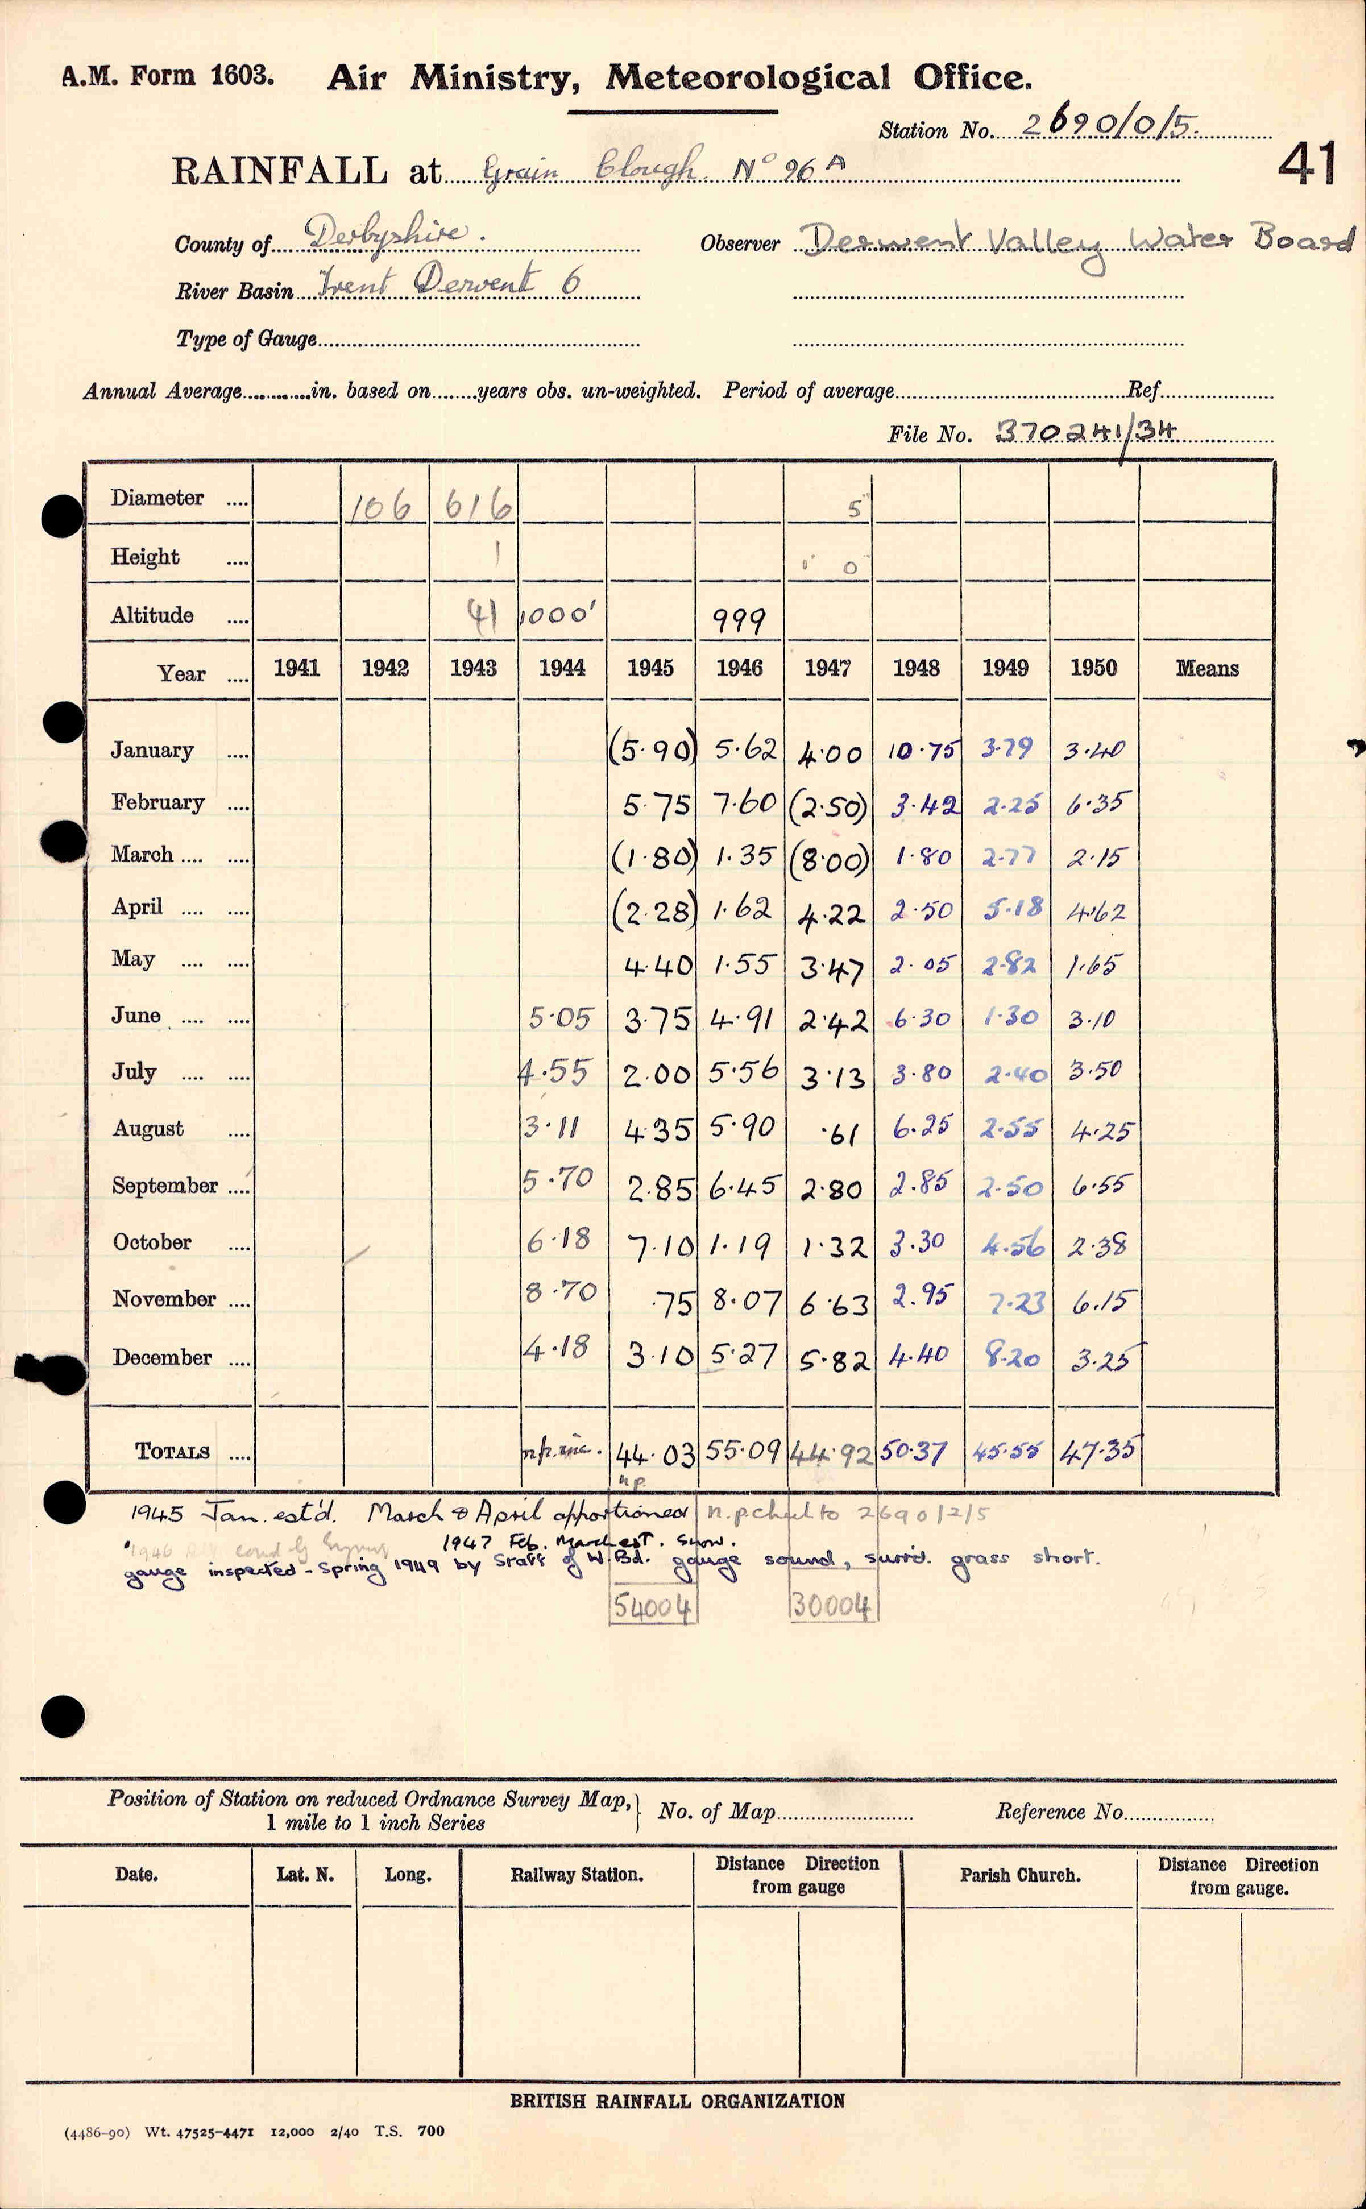 A.M. Form 1603. Air Ministry, Meteorological Office.
Station No. 2690/0/5.
41
RAINFALL at Grain Clough. Nº 96 A
County of Derbyshire. Observer Derwent Valley Water Board
River Basin Trent Derwent 6
Type of Gauge
Annual Average............in. based on........years obs. un-weighted. Period of average Ref.
File No. 370241/34
Diameter .... 106 616 5"
Height .... 1 0
Altitude .... 41 1000' 999
Year .... 1941 1942 1943 1944 1945 1946 1947 1948 1949 1950 Means
January .... (5.90) 5.62 4.00 10.75 3.79 3.40
February .... 5.75 7.60 (2.50) 3.42 2.25 6.35
March .... .... (1.80) 1.35 (8.00) 1.80 2.77 2.15
April .... .... (2.28) 1.62 4.22 2.50 5.18 4.62
May .... .... 4.40 1.55 3.47 2.05 2.82 1.65
June .... .... 5.05 3.75 4.91 2.42 6.30 1.30 3.10
July .... .... 4.55 2.00 5.56 3.13 3.80 2.40 3.50
August .... 3.11 4.35 5.90 .61 6.25 2.55 4.25
September .... 5.70 2.85 6.45 2.80 2.85 2.50 6.55
October .... 6.18 7.10 1.19 1.32 3.30 4.56 2.38
November .... 8.70 .75 8.07 6.63 2.95 7.23 6.15
December .... 4.18 3.10 5.27 5.82 4.40 8.20 3.25
TOTALS .... 44.03 55.09 44.92 50.37 45.55 47.35
n.p.
1945 Jan. est'd. March & April apportioned n.p. to 2690/2/5
1946 1947 Feb. March est. Snow.
gauge inspected - Spring 1949 by Staff of W. Bd. gauge sound, surr'd. grass short.
54004 30004
Position of Station on reduced Ordnance Survey Map, 1 mile to 1 inch Series } No. of Map Reference No.
Date. Lat. N. Long. Railway Station. Distance Direction from gauge Parish Church. Distance Direction from gauge.
BRITISH RAINFALL ORGANIZATION
(4486-90) Wt. 47525-4471 12,000 2/40 T.S. 700